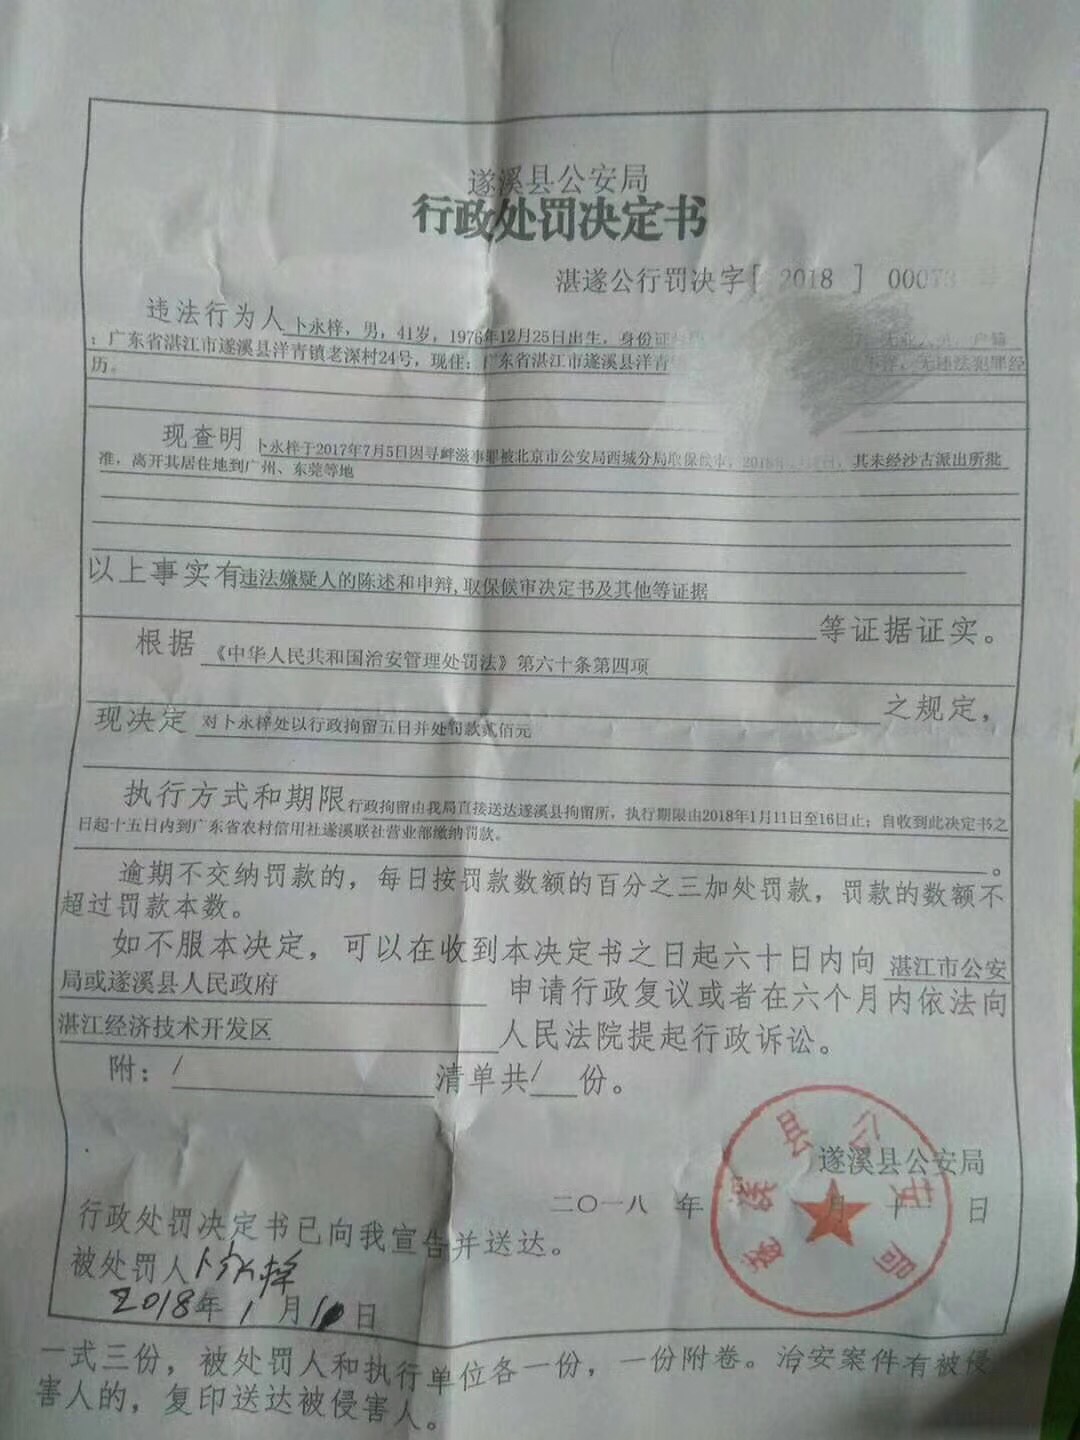 遂溪县公安局
行政处罚决定书
湛遂公行罚决字[ 2018 ] 00073
违法行为人卜永梓，男，41岁，1976年12月25日出生，身份证
：广东省湛江市遂溪县洋青镇老深村24号，现住：广东省湛江市遂溪县洋青 无违法犯罪经
历。
现查明 卜永梓于2017年7月5日因寻衅滋事罪被北京市公安局西城分局取保候审，其未经沙古派出所批
准，离开其居住地到广州、东莞等地
以上事实有违法嫌疑人的陈述和申辩,取保候审决定书及其他等证据
等证据证实。
根据 《中华人民共和国治安管理处罚法》第六十条第四项
之规定，
现决定 对卜永梓处以行政拘留五日并处罚款贰佰元
执行方式和期限行政拘留由我局直接送达遂溪县拘留所，执行期限由2018年1月11日至16日止；自收到此决定书之
日起十五日内到广东省农村信用社遂溪联社营业部缴纳罚款。
。
逾期不交纳罚款的，每日按罚款数额的百分之三加处罚款，罚款的数额不
超过罚款本数。
如不服本决定，可以在收到本决定书之日起六十日内向 湛江市公安
局或遂溪县人民政府 申请行政复议或者在六个月内依法向
湛江经济技术开发区 人民法院提起行政诉讼。
附：/ 清单共/ 份。
遂溪县公安局
二〇一八 年 月 日
遂溪县公安局
行政处罚决定书已向我宣告并送达。
被处罚人卜永梓
2018年1月10日
一式三份，被处罚人和执行单位各一份，一份附卷。治安案件有被侵
害人的，复印送达被侵害人。